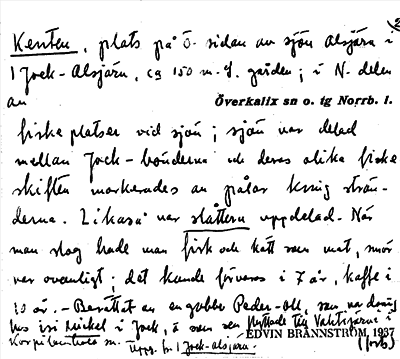 Kenten, plats på ö. sidan av sjön Alsjärv i
1 Jock-Alsjärv, ca 150 m. f. gården; i N. delen
av
Överkalix sn o. tg Norrb. l.
fiskeplatser vid sjön; sjön var delad
mellan Jock-bönderna och deras olika fiske
skiften markerades av pålar kring strän-
derna. Likaså var slåttern uppdelad. När
man slog hade man fisk och kött som mat, smör
var ovanligt; det kunde förvaras i 7 år, kaffe i
10 år. – Berättat av en gubbe Peder-Oll, som var dräng
hos isi Mickel i Jock, å som sen flyttade till
EDVIN BRÄNNSTRÖM, 1937
Korpilombolo sn. Uppg. fr. 1 Jock-alsjärv. (forts)